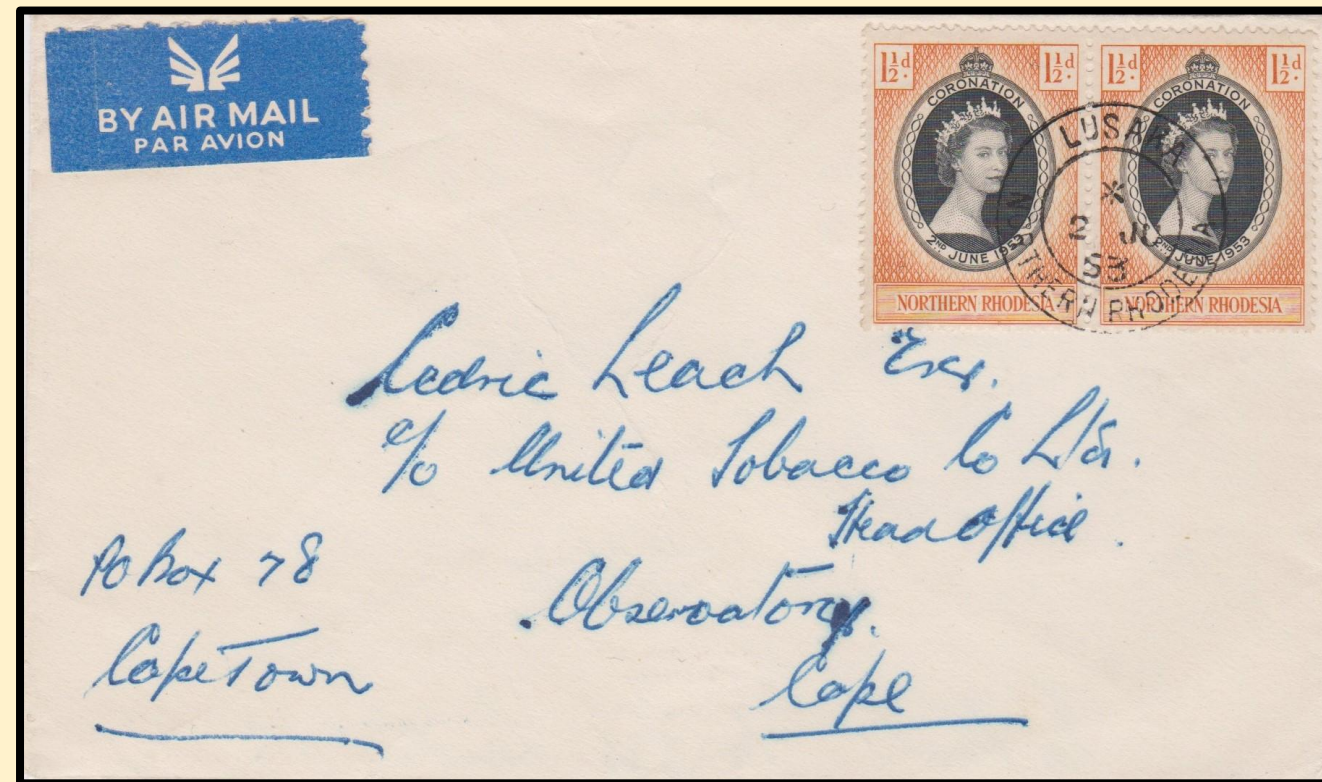 BY AIR MAIL
PAR AVION
1½d. 1½d.
CORONATION
2ND JUNE 1953
NORTHERN RHODESIA
1½d. 1½d.
CORONATION
2ND JUNE 1953
NORTHERN RHODESIA
LUSAKA
*
2 JU
53
NORTHERN RHODESIA
Cedric Leach Esq.
c/o United Tobacco Co Ltd.
Head Office.
Observatory.
Cape
PO Box 78
Cape Town